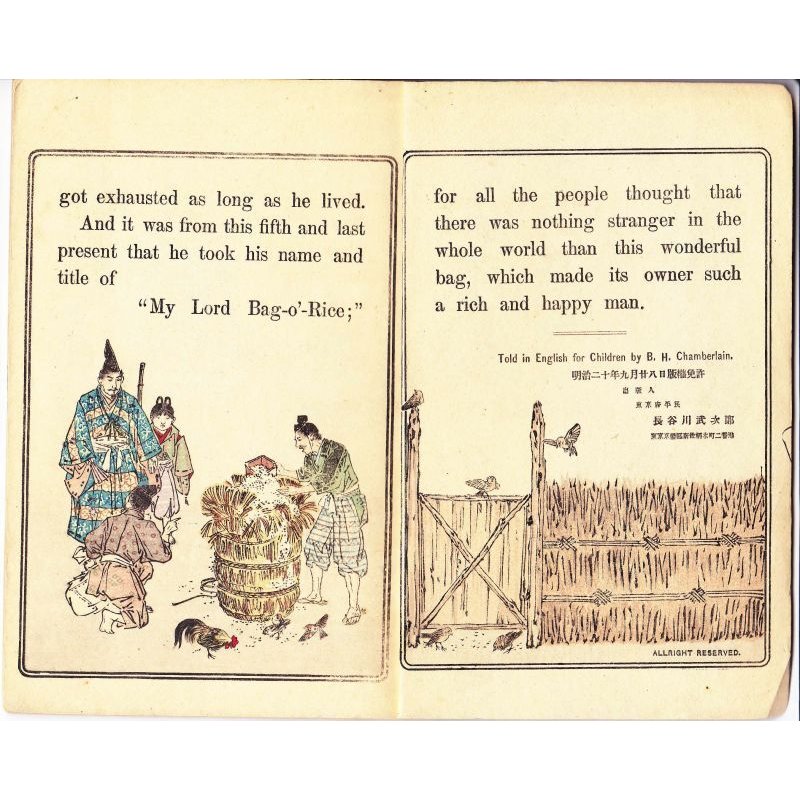 got exhausted as long as he lived.
And it was from this fifth and last
present that he took his name and
title of
"My Lord Bag-o'-Rice;"
for all the people thought that
there was nothing stranger in the
whole world than this wonderful
bag, which made its owner such
a rich and happy man.
Told in English for Children by B. H. Chamberlain.
明治二十年九月廿八日版權免許
出版人
東京府平民
長谷川武次郎
ALLRIGHT RESERVED.